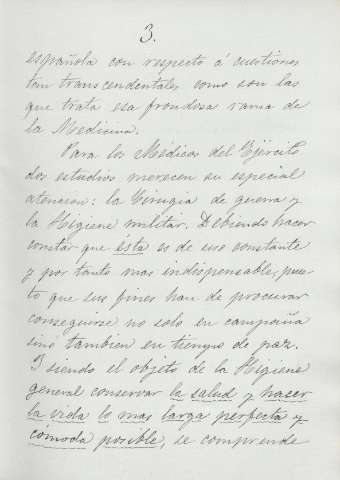 3.
española con respecto á cuestiones
tan transcendentales como son las
que trata esa frondosa rama de
la Medicina.
Para los Médicos del Ejército
dos estudios merecen su especial
atención: la Cirugia de guerra y
la Higiene militar. Debiendo hacer
constar que ésta es de uso constante
y por tanto mas indispensable, pues-
to que sus fines han de procurar
conseguirse no solo en campaña
sinó tambien en tiempo de paz.
I siendo el objeto de la Higiene
general conservar la salud y hacer
la vida lo mas larga perfecta y
cómoda posible, se comprende